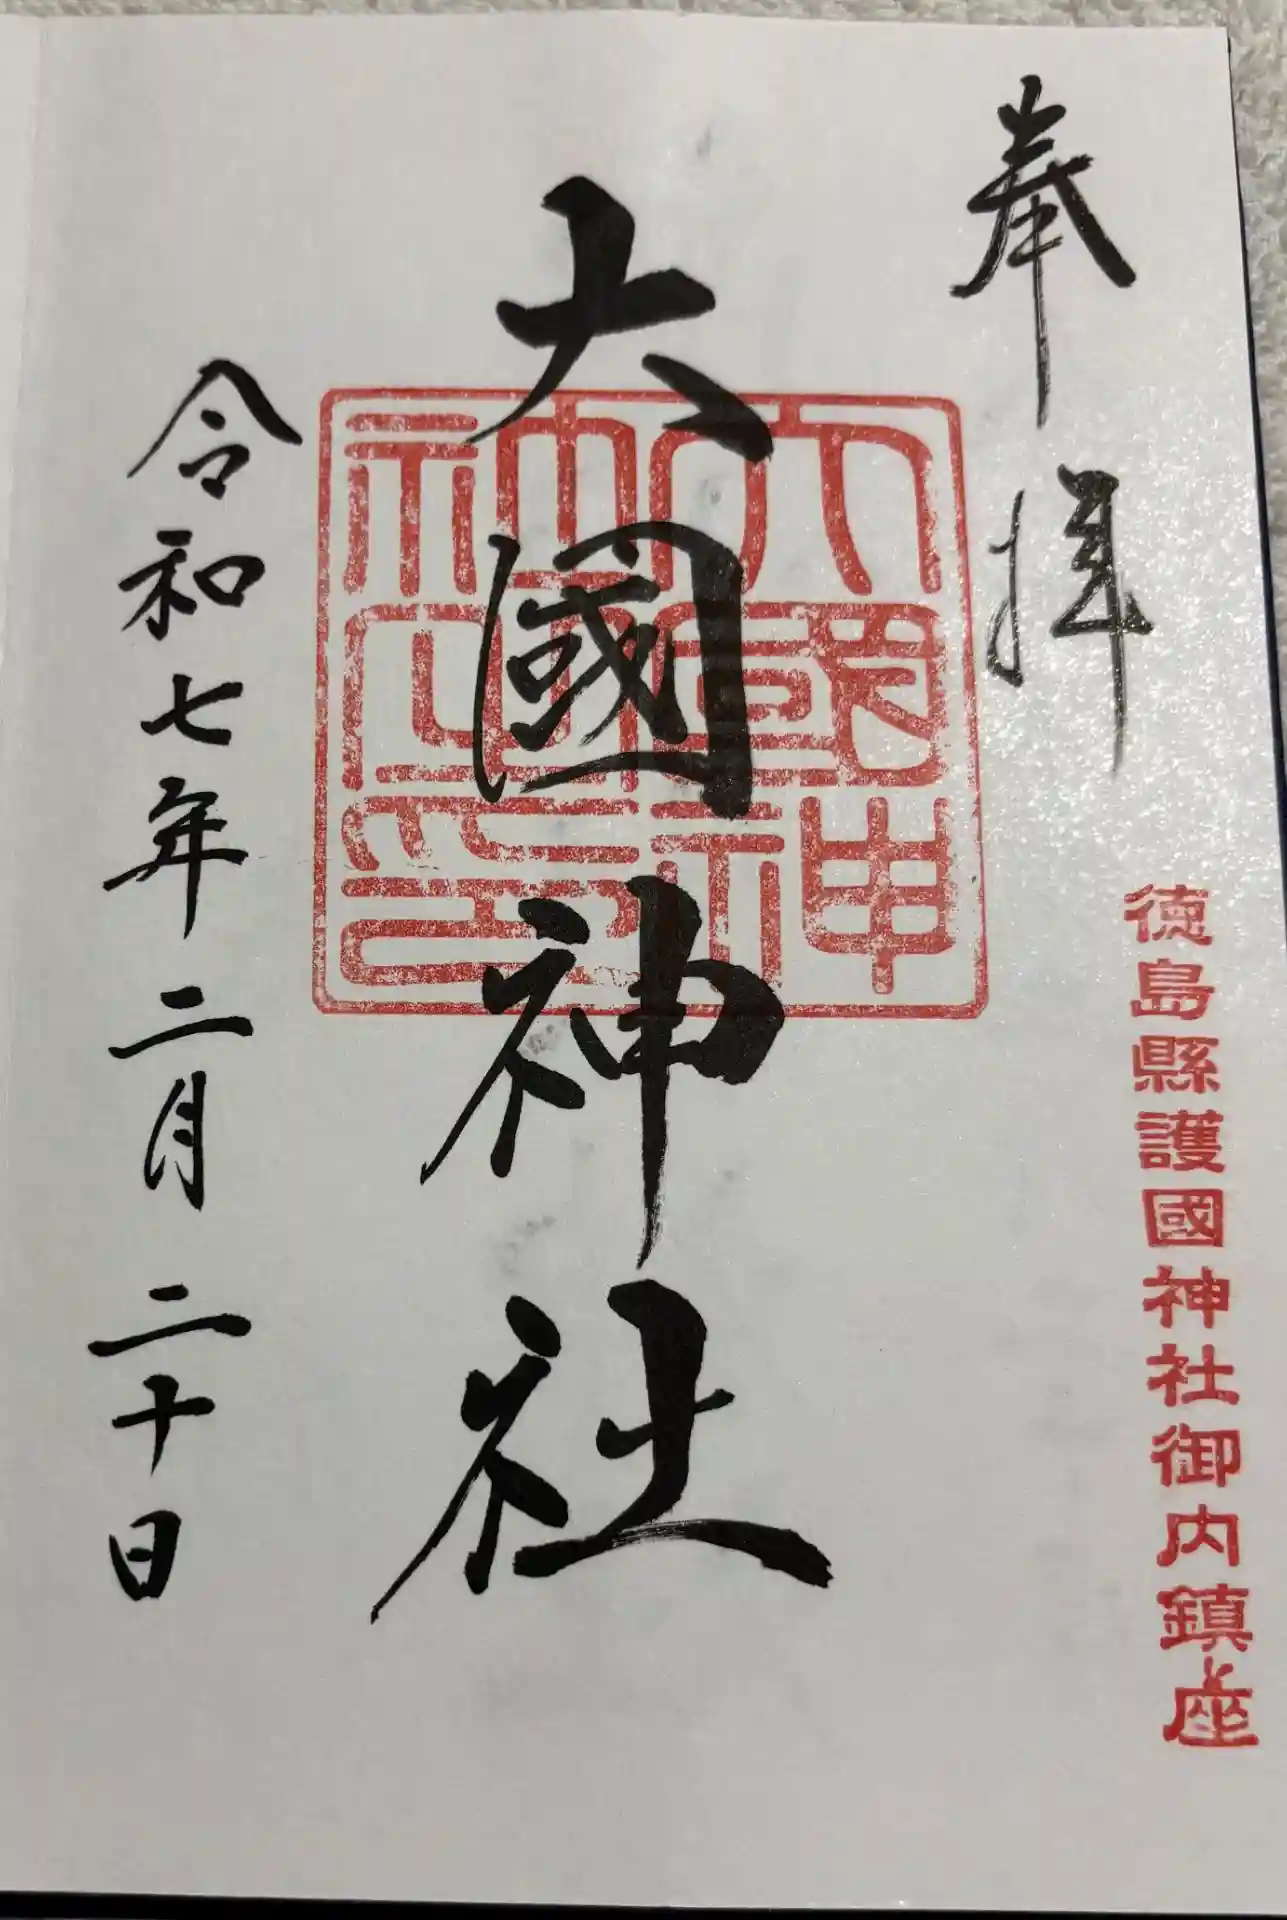 奉拝
徳島縣護國神社御内鎮座
大國神社
大國神社神山之印
令和七年二月二十日